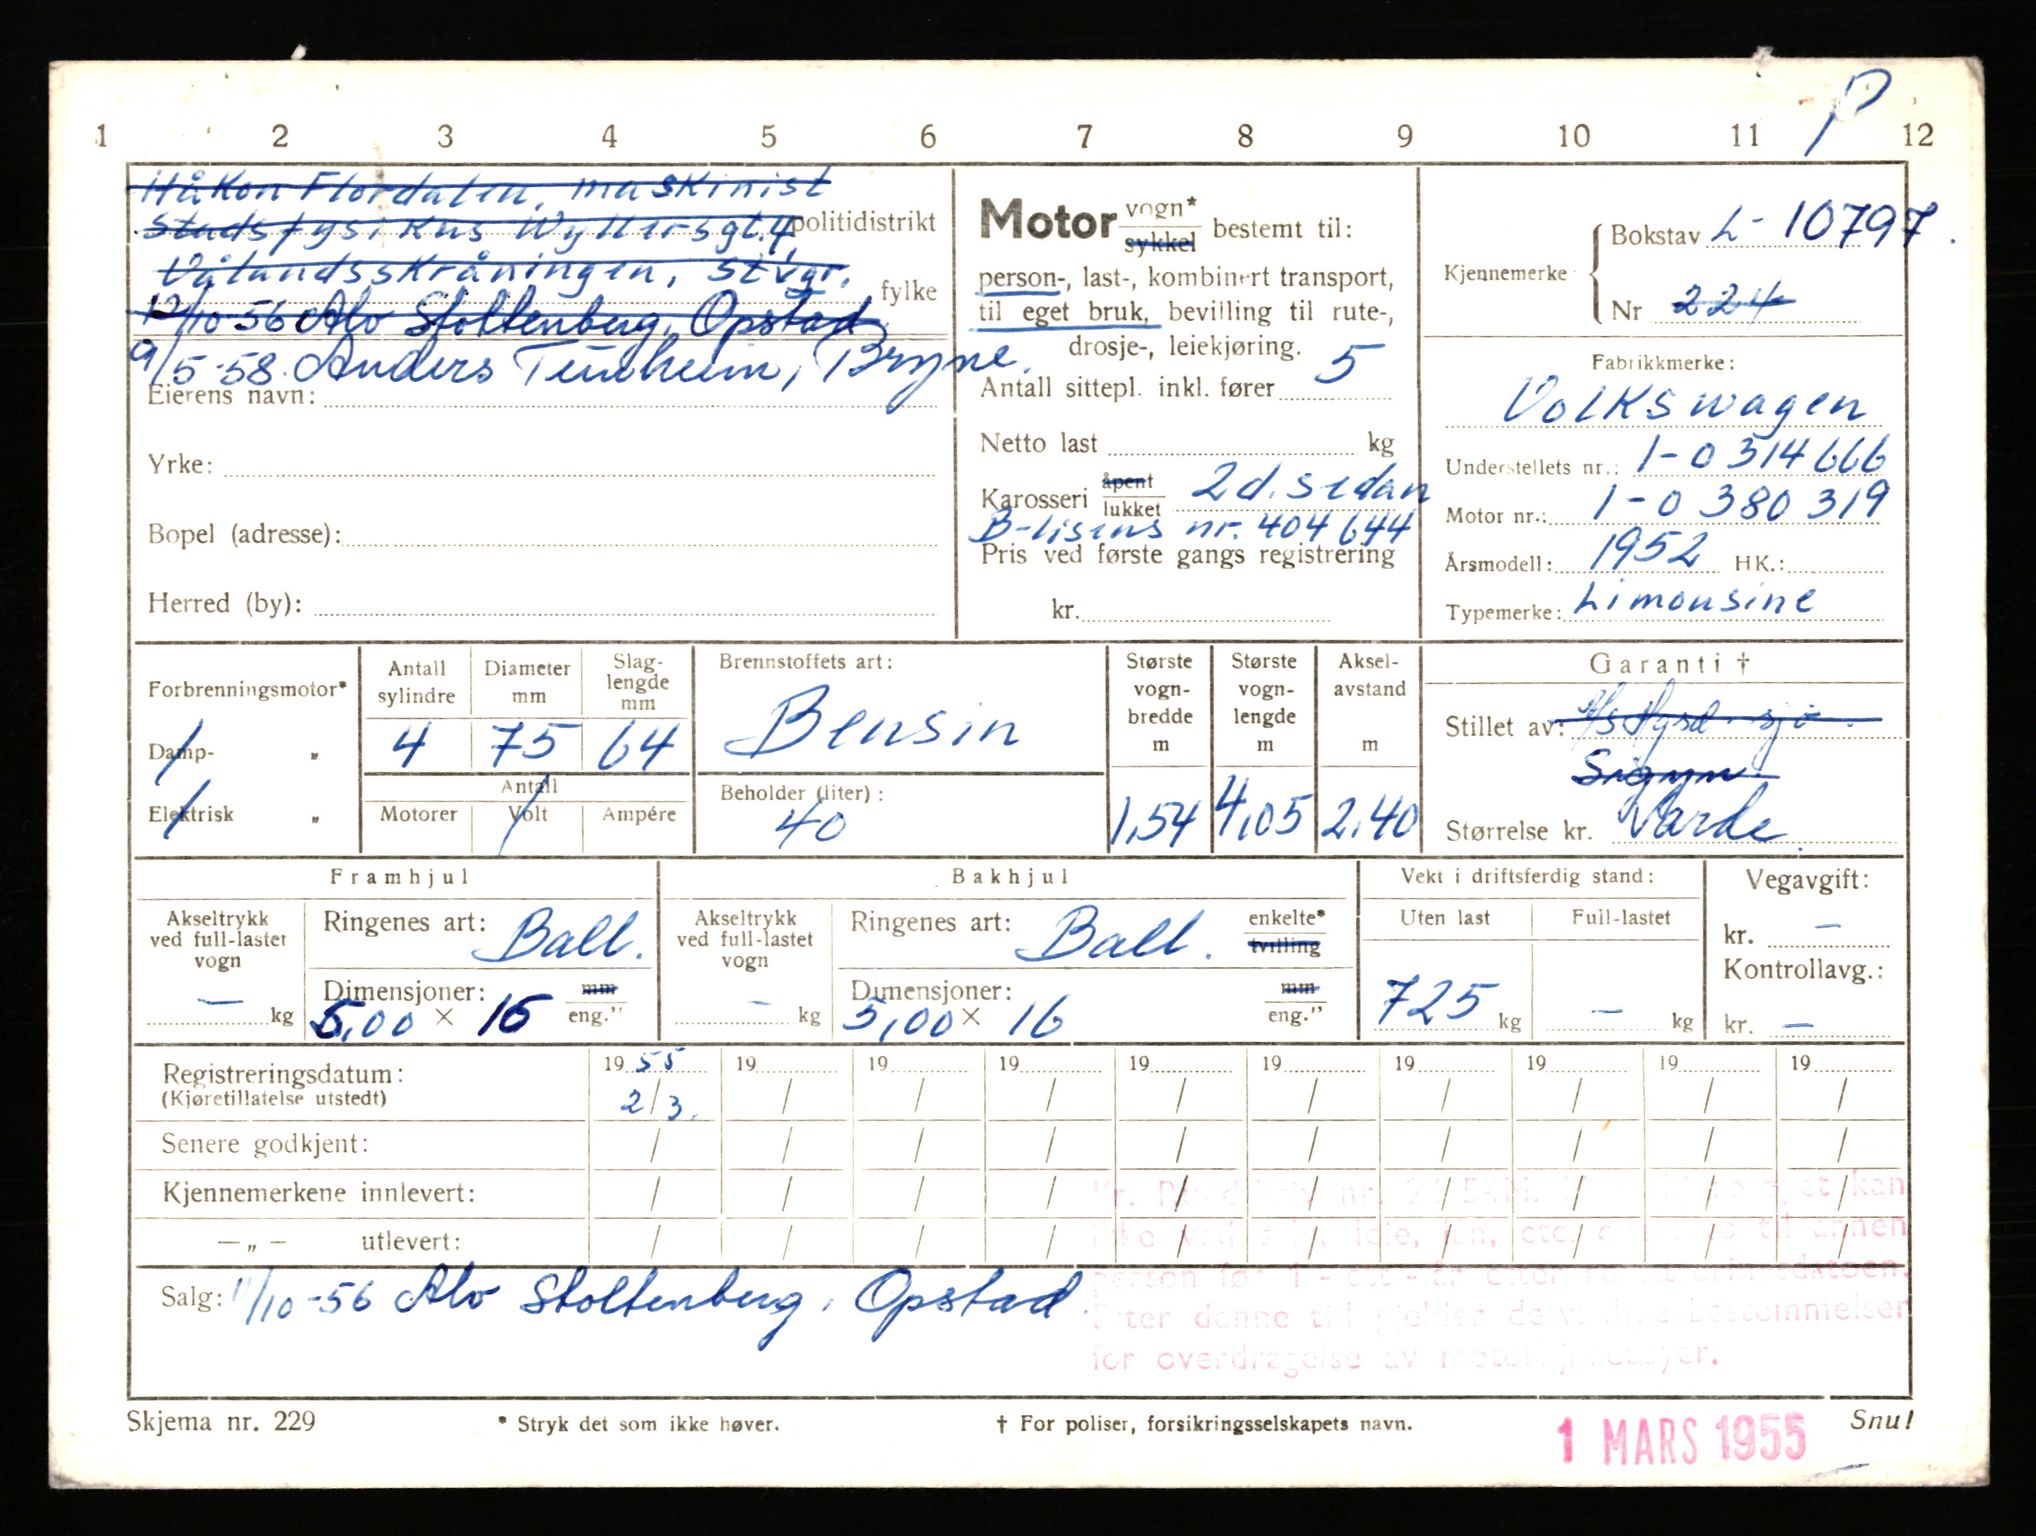 P
1 2 3 4 5 6 7 8 9 10 11 12
Håkon Flordalen, maskinist
Stadsfysikus Wyllersgt. 4, politidistrikt
Vålandsskråningen, St'vgr. fylke
12/10-56 Alv Stoltenberg, Opstad
9/5-58. Anders Tunheim, Bryne.
Eierens navn:
Yrke:
Bopel (adresse):
Herred (by):
Motor vogn* sykkel bestemt til:
person-, last-, kombinert transport,
til eget bruk, bevilling til rute-,
drosje-, leiekjøring.
Antall sittepl. inkl. fører 5
Netto last kg
Karosseri åpent lukket 2d. sedan
B-lisens nr. 404644
Pris ved første gangs registrering
kr.
Kjennemerke
Bokstav L- 10797.
Nr 224
Fabrikkmerke:
Volkswagen
Understellets nr.: 1-0314666
Motor nr.: 1-0380319
Årsmodell: 1952 HK.:
Typemerke: Limousine
Forbrenningsmotor*
Damp- „
Elektrisk „
Antall sylindre
4
Diameter mm
75
Slag-
lengde
mm
64
Antall
Motorer Volt Ampére
Brennstoffets art:
Bensin
Beholder (liter):
40
Største
vogn-
bredde
m
1,54
Største
vogn-
lengde
m
4,05
Aksel-
avstand
m
2,40
Garanti †
Stillet av:
Sigyn
Størrelse kr. Varde.
Framhjul
Akseltrykk
ved full-lastet
vogn
— kg
Ringenes art: Ball.
Dimensjoner: mm
5,00 × 15 eng."
Bakhjul
Akseltrykk
ved full-lastet
vogn
— kg
Ringenes art: Ball. enkelte* tvilling
Dimensjoner: mm
5,00 × 16 eng."
Vekt i driftsferdig stand:
Uten last Full-lastet
725 kg — kg
Vegavgift:
kr. —
Kontrollavg.:
kr. —
Registreringsdatum: 19 55 19 19 19 19 19 19 19 19 19
(Kjøretillatelse utstedt) 2/3. / / / / / / / / /
Senere godkjent: / / / / / / / / / /
Kjennemerkene innlevert: / / / / / / / / / /
— „ — utlevert: / / / / / / / / / /
Salg: 11/10-56 Alv Stoltenberg, Opstad
kan
ikke ved leie, lån, etc. til annen
person før 1 - ett - år etter
Etter denne tid gjelder de vanlige bestemmelser
for overdragelse av motorkjøretøyer.
Skjema nr. 229 * Stryk det som ikke høver. † For poliser, forsikringsselskapets navn. Snu!
1 MARS 1955